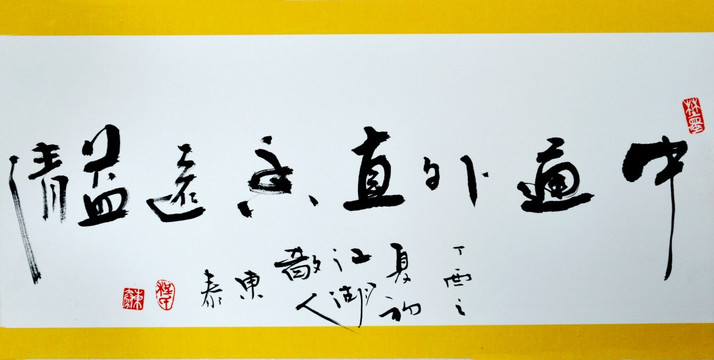 中通外直香遠益清
丁酉之
夏初
江湖
散人
東
泰